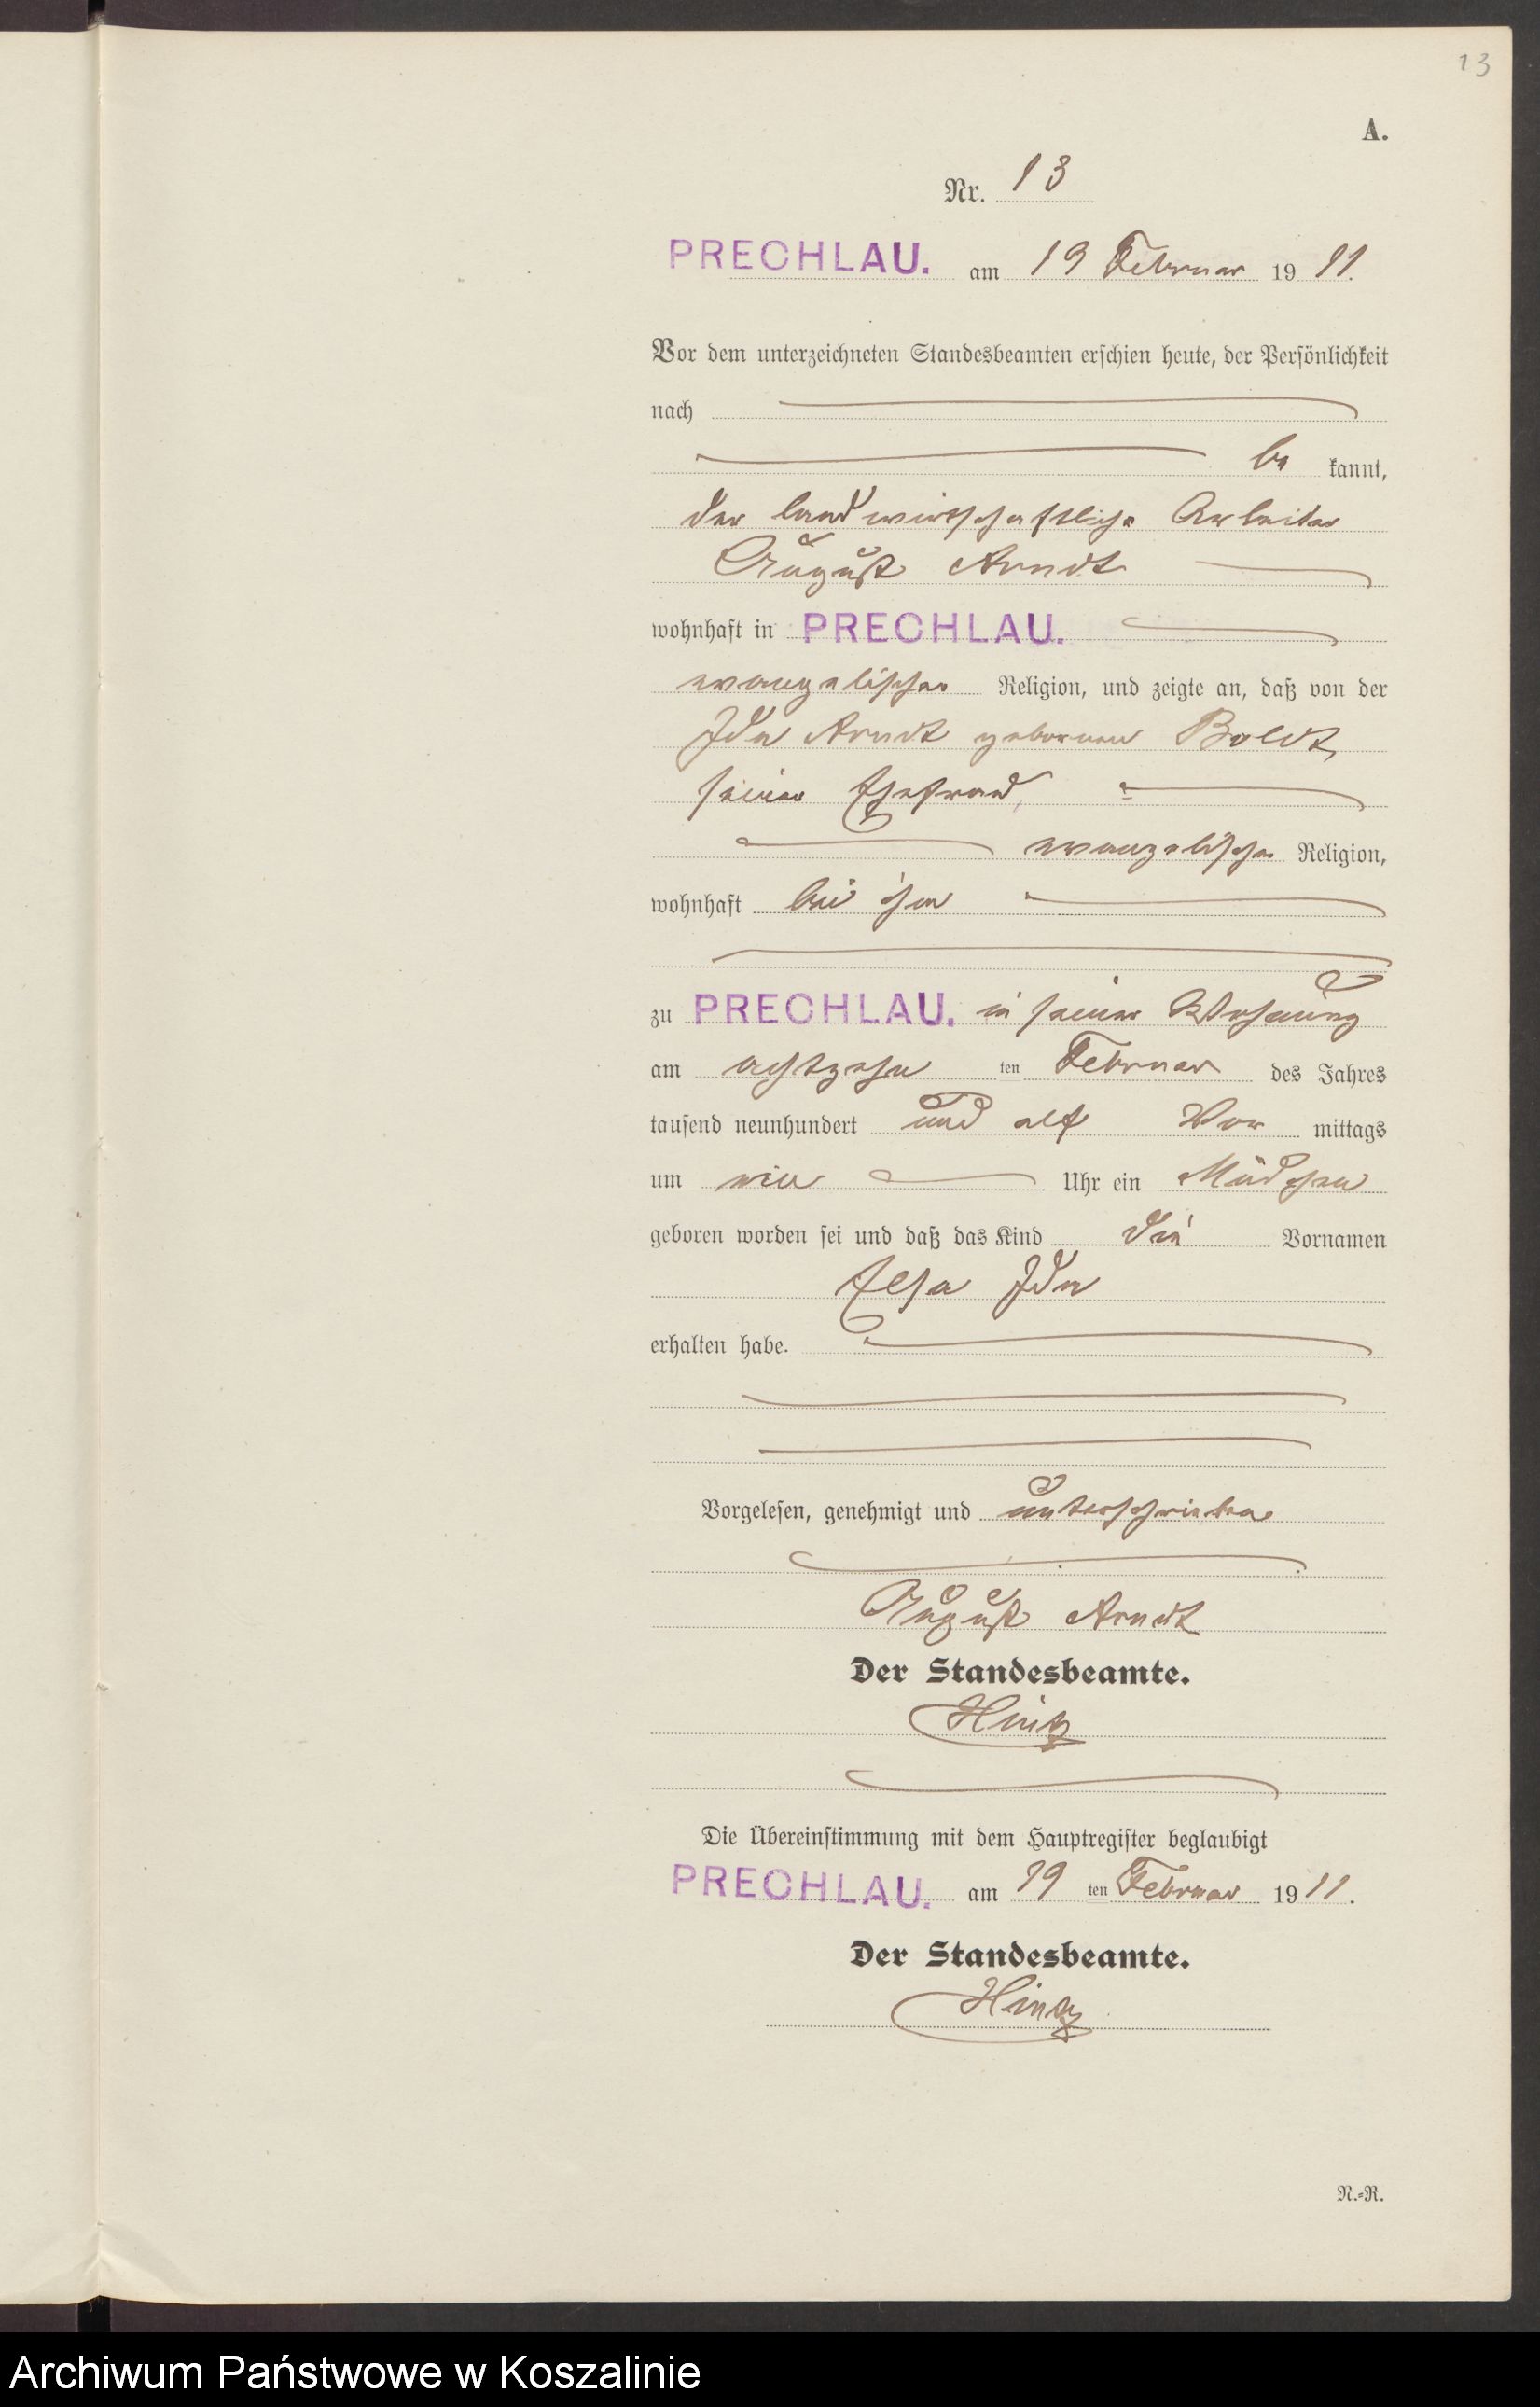 13
A.
Nr. 13
PRECHLAU. am 19 Februar 1911.
Vor dem unterzeichneten Standesbeamten erschien heute, der Persönlichkeit
nach
be kannt,
der landwirtschaftliche Arbeiter
August Arndt
wohnhaft in PRECHLAU.
evangelischer Religion, und zeigte an, daß von der
Ida Arndt geborenen Boldt,
seiner Ehefrau,
evangelischer Religion,
wohnhaft bei ihm
zu PRECHLAU. in seiner Wohnung
am achtzehn ten Februar des Jahres
tausend neunhundert und elf Vor mittags
um Uhr ein Mädchen
geboren worden sei und daß das Kind die Vornamen
Elsa Ida
erhalten habe.
Vorgelesen, genehmigt und unterschrieben
August Arndt
Der Standesbeamte.
Hintz
Die Übereinstimmung mit dem Hauptregister beglaubigt
PRECHLAU. am 19 ten Februar 1911.
Der Standesbeamte.
Hintz
N.=R.
Archiwum Państwowe w Koszalinie